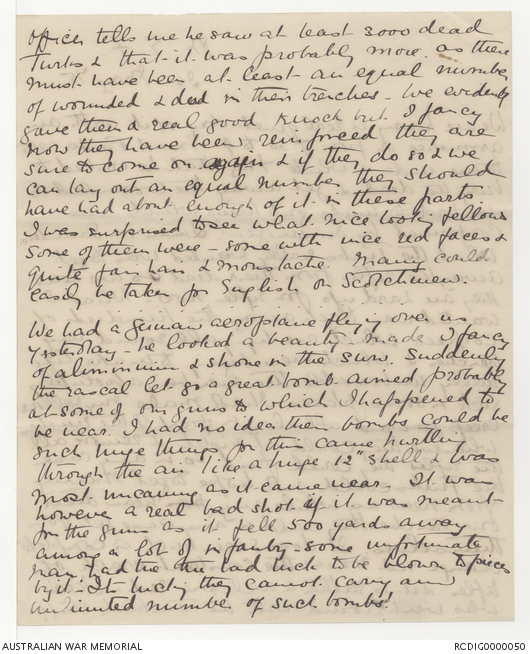 Officer tells me he saw at least 3000 dead
Turks & that it was probably more as there
must have been at least an equal number
of wounded & dead in their trenches - We evidently
gave them a real good knock but I fancy
now they have been reinforced they are
sure to come on again & if they do so & we
can lay out an equal number they should
have had about enough of it in these parts
I was surprised to see what nice looking fellows
some of them were - some with nice red faces &
quite fair hair & moustache. Many could
easily be taken for English or Scotchmen.
We had a German aeroplane flying over us
yesterday - he looked a beauty - made I fancy
of aluminium & shone in the sun. Suddenly
the rascal let go a great bomb aimed probably
at some of our guns to which I happened to
be near. I had no idea these bombs could be
such huge things for this came hurtling
through the air like a huge 12" shell & was
most uncanny as it came near. It was
however a real bad shot if it was meant
for the guns as it fell 500 yards away
among a lot of infantry - some unfortunate
man had the bad luck to be blown to pieces
by it - Its lucky they cannot carry an
unlimited number of such bombs!
AUSTRALIAN WAR MEMORIAL
RCDIG0000050